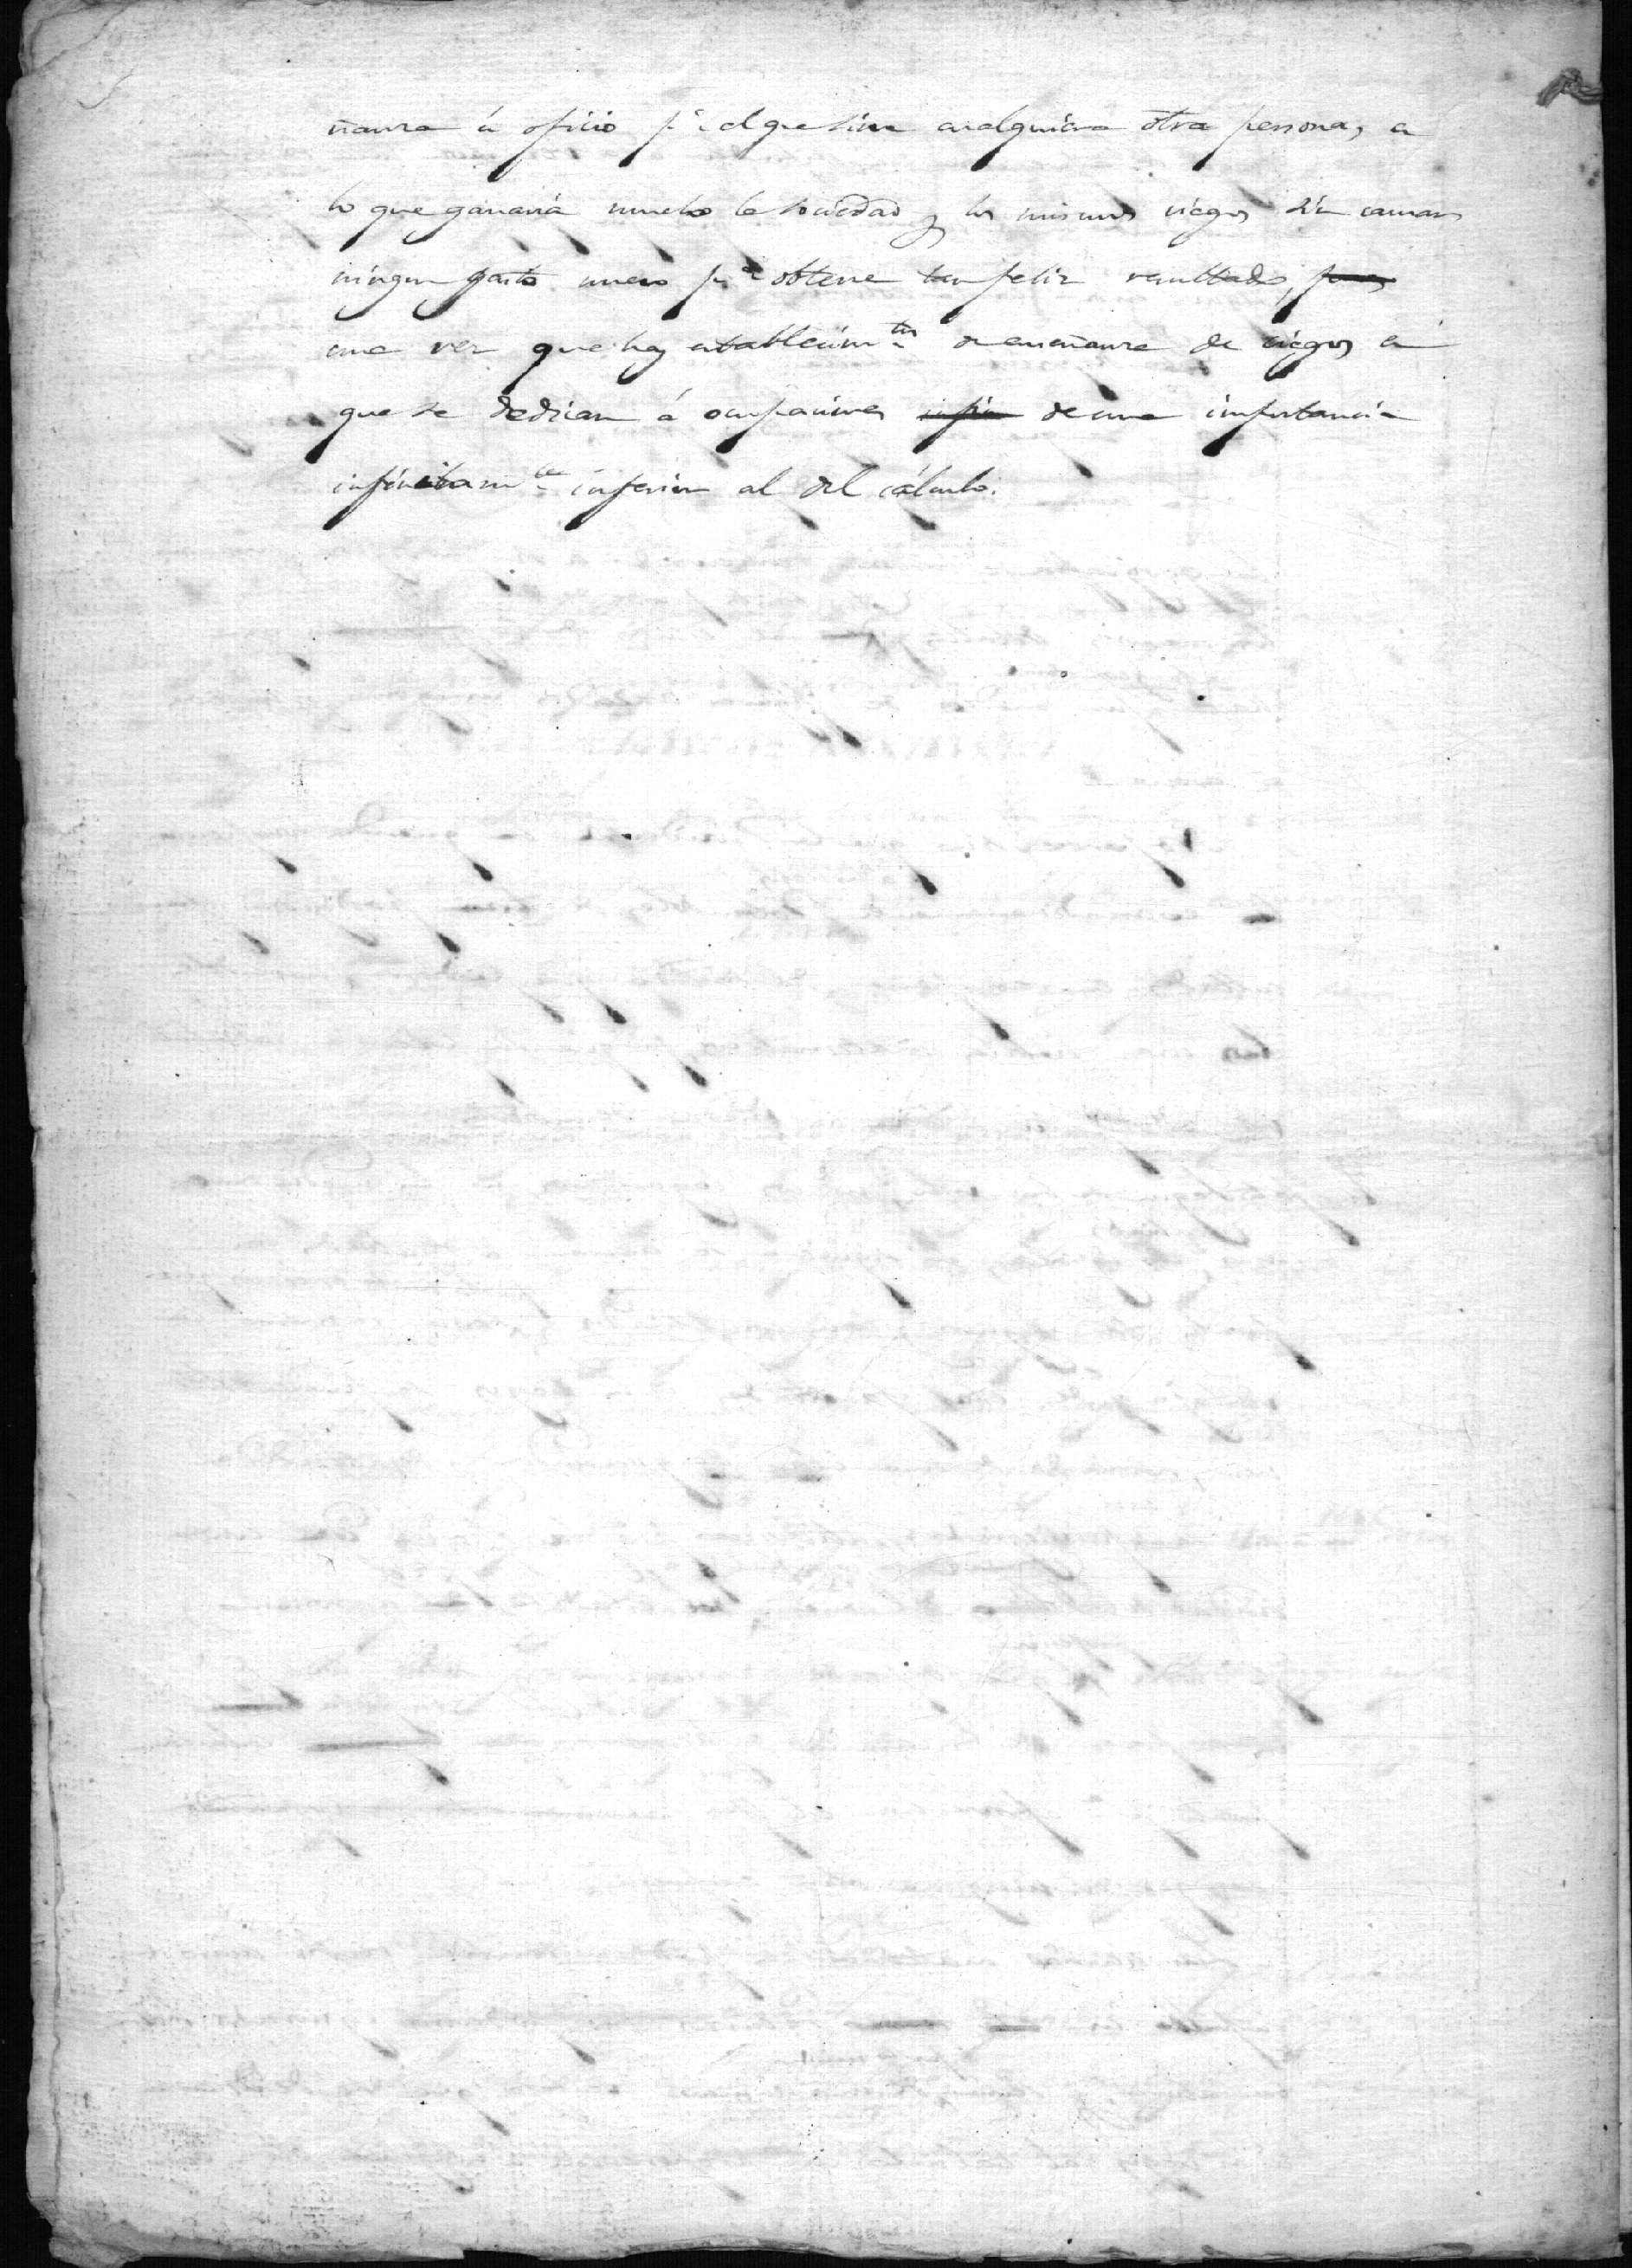 ñanza ú oficio p.ª el que sirve cualquiera otra persona, en
lo que ganaria mucho la sociedad y los mismos ciegos sin causar
ningun gasto nuevo p.ª obtener tan feliz resultado, pues
una vez que hay establecim.tos de enseñanza de ciegos en
que se dedican á ocupaciones de una importancia
infinitam.te inferior al del cálculo.